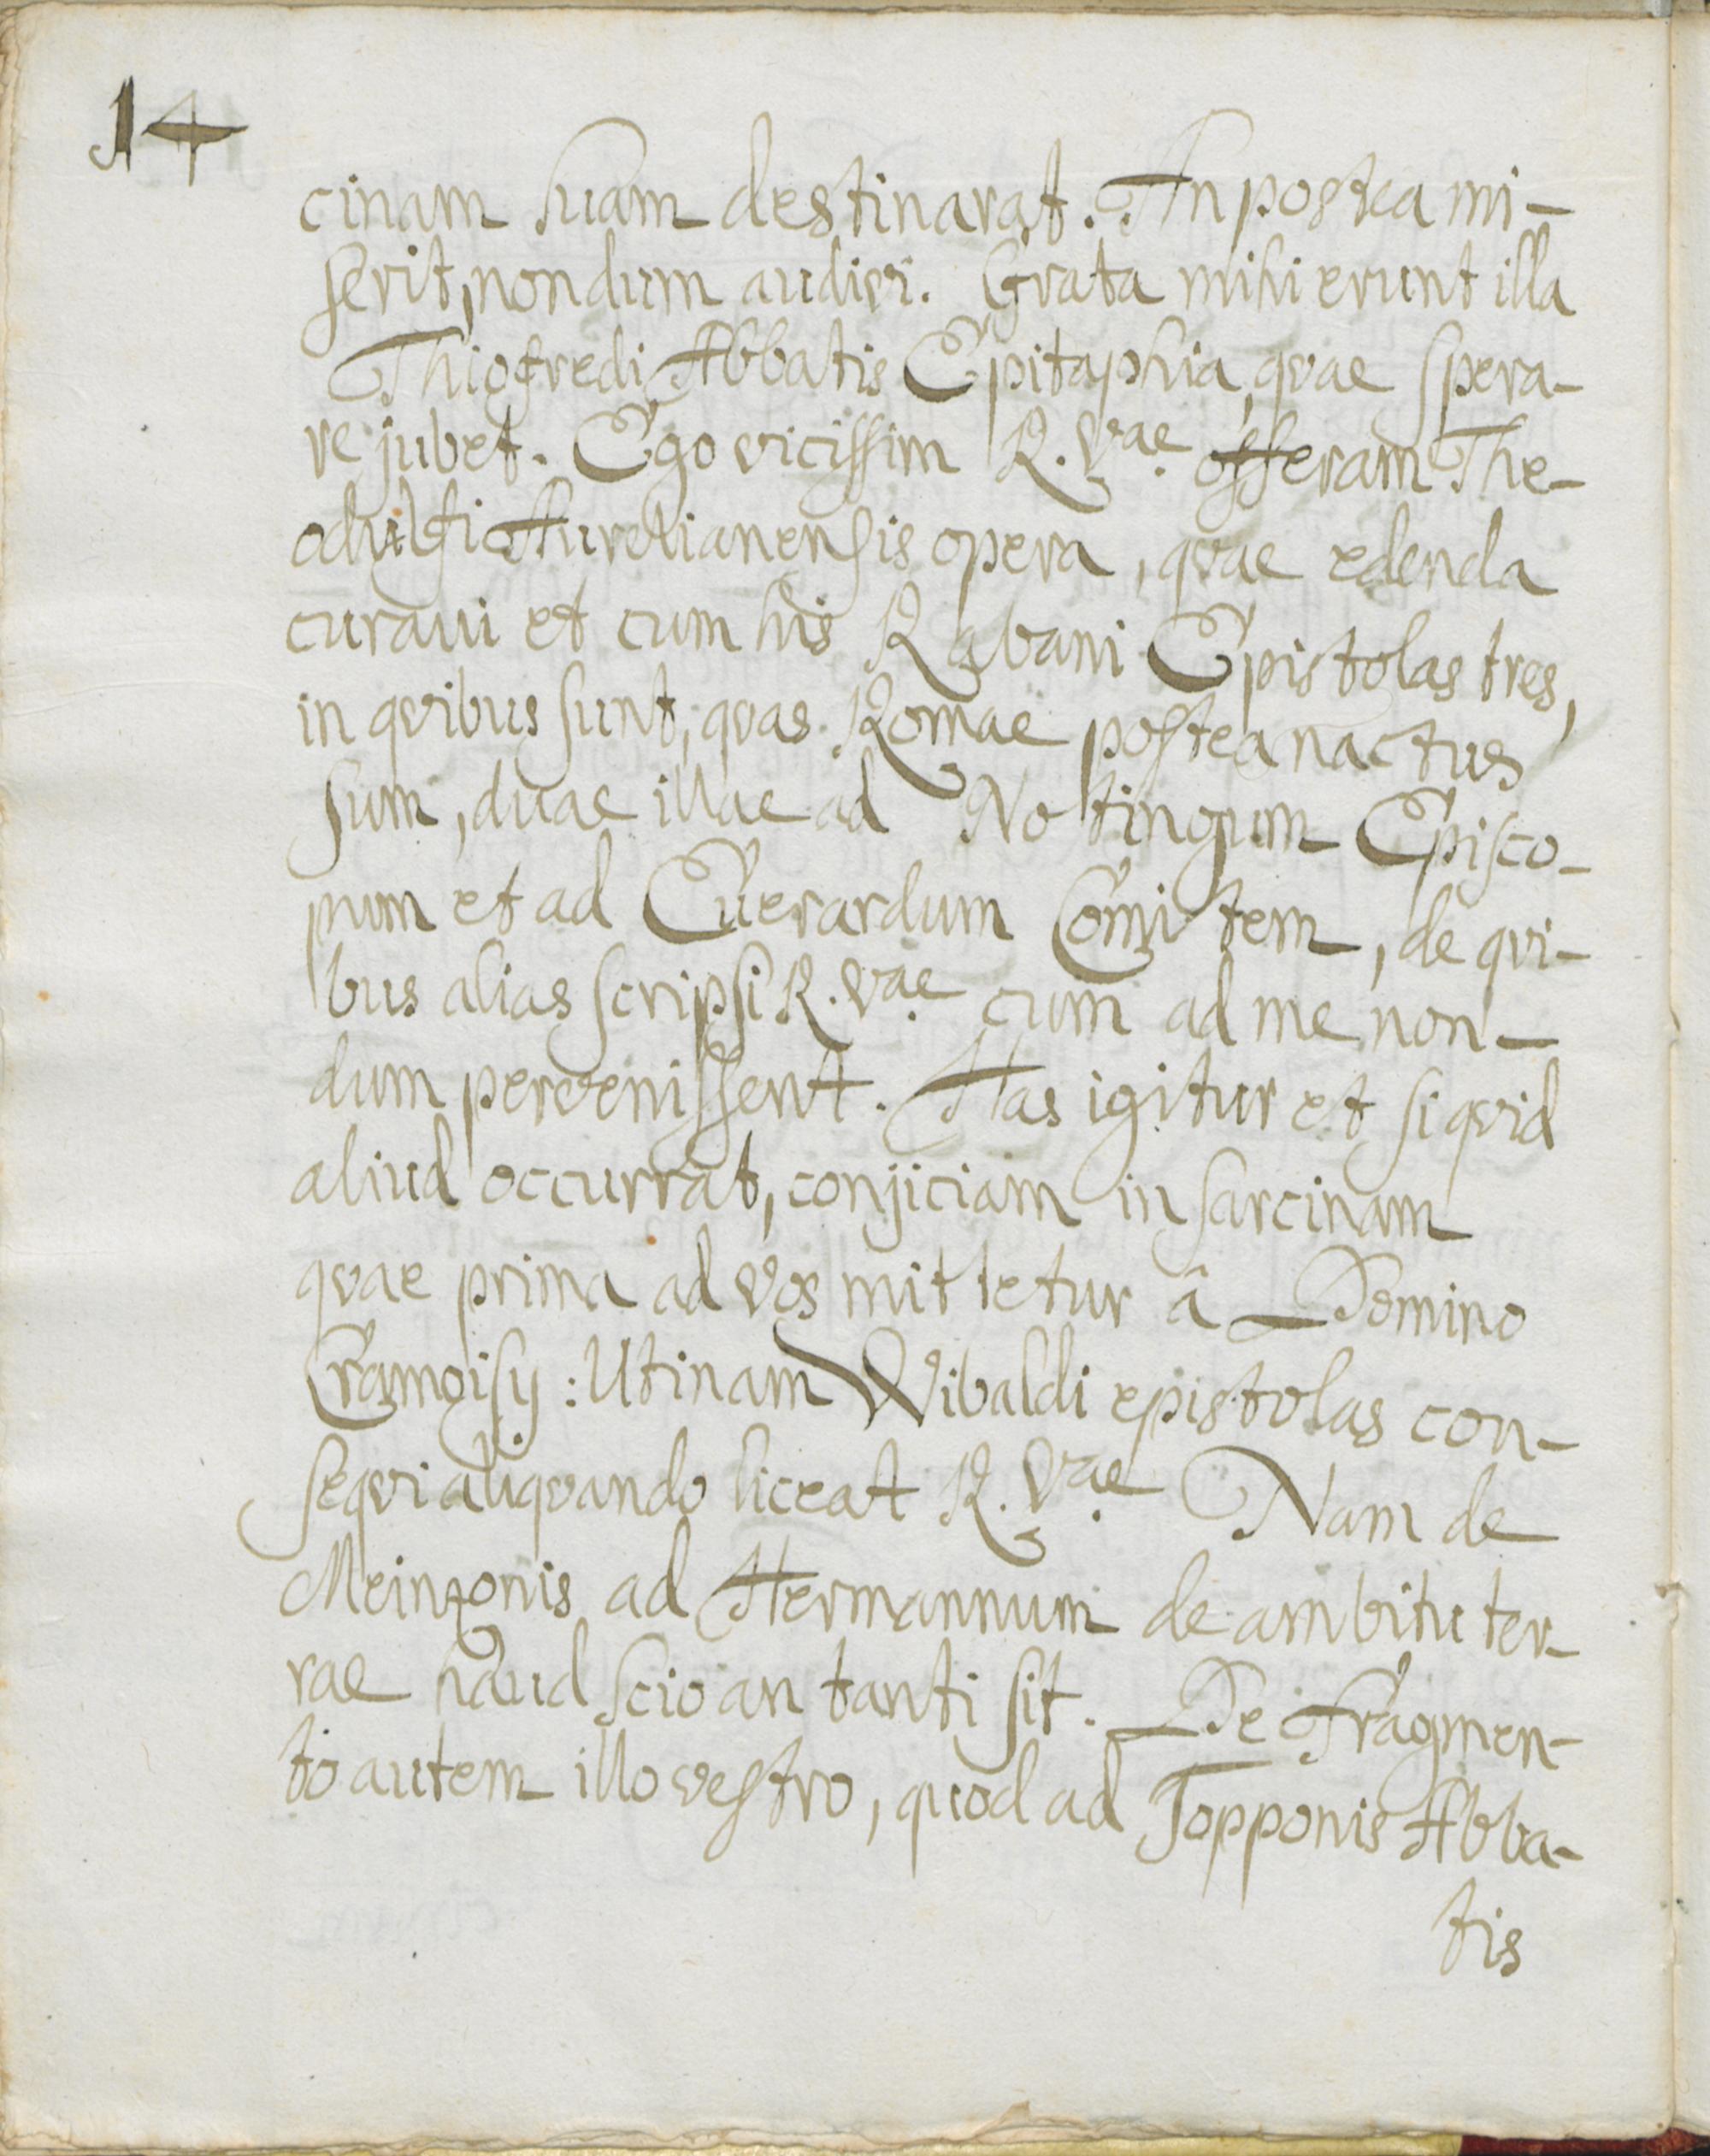 14
cinam suam destinarat. An postea mi-
serit, nondum audivi. Grata mihi erunt illa
Thiofredi Abbatis Epitaphia, qvae spera-
re jubet. Ego vicissim R. Vae. offeram The-
odulfi Aurelianensis opera, qvae edenda
curaui et cum his Rabani Epistolas tres,
in qvibus sunt, qvas Romae postea nactus
sum, duae illae ad Notingum Episco-
pum et ad Euerardum Comitem, de qvi-
bus alias scripsi R. vae. cum ad me non-
dum pervenissent. Has igitur et si qvid
aliud occurrat, conjiciam in sarcinam
qvae prima ad vos mittetur â Domino
Cramoisy: Utinam Wibaldi epistolas con-
seqvi aliqvando liceat R. Vae. Nam de
Meinzonis ad Hermannum de ambitu ter-
rae haud scio an tanti sit. De Fragmen-
to autem illo vestro, quod ad Topponis Abba-
tis